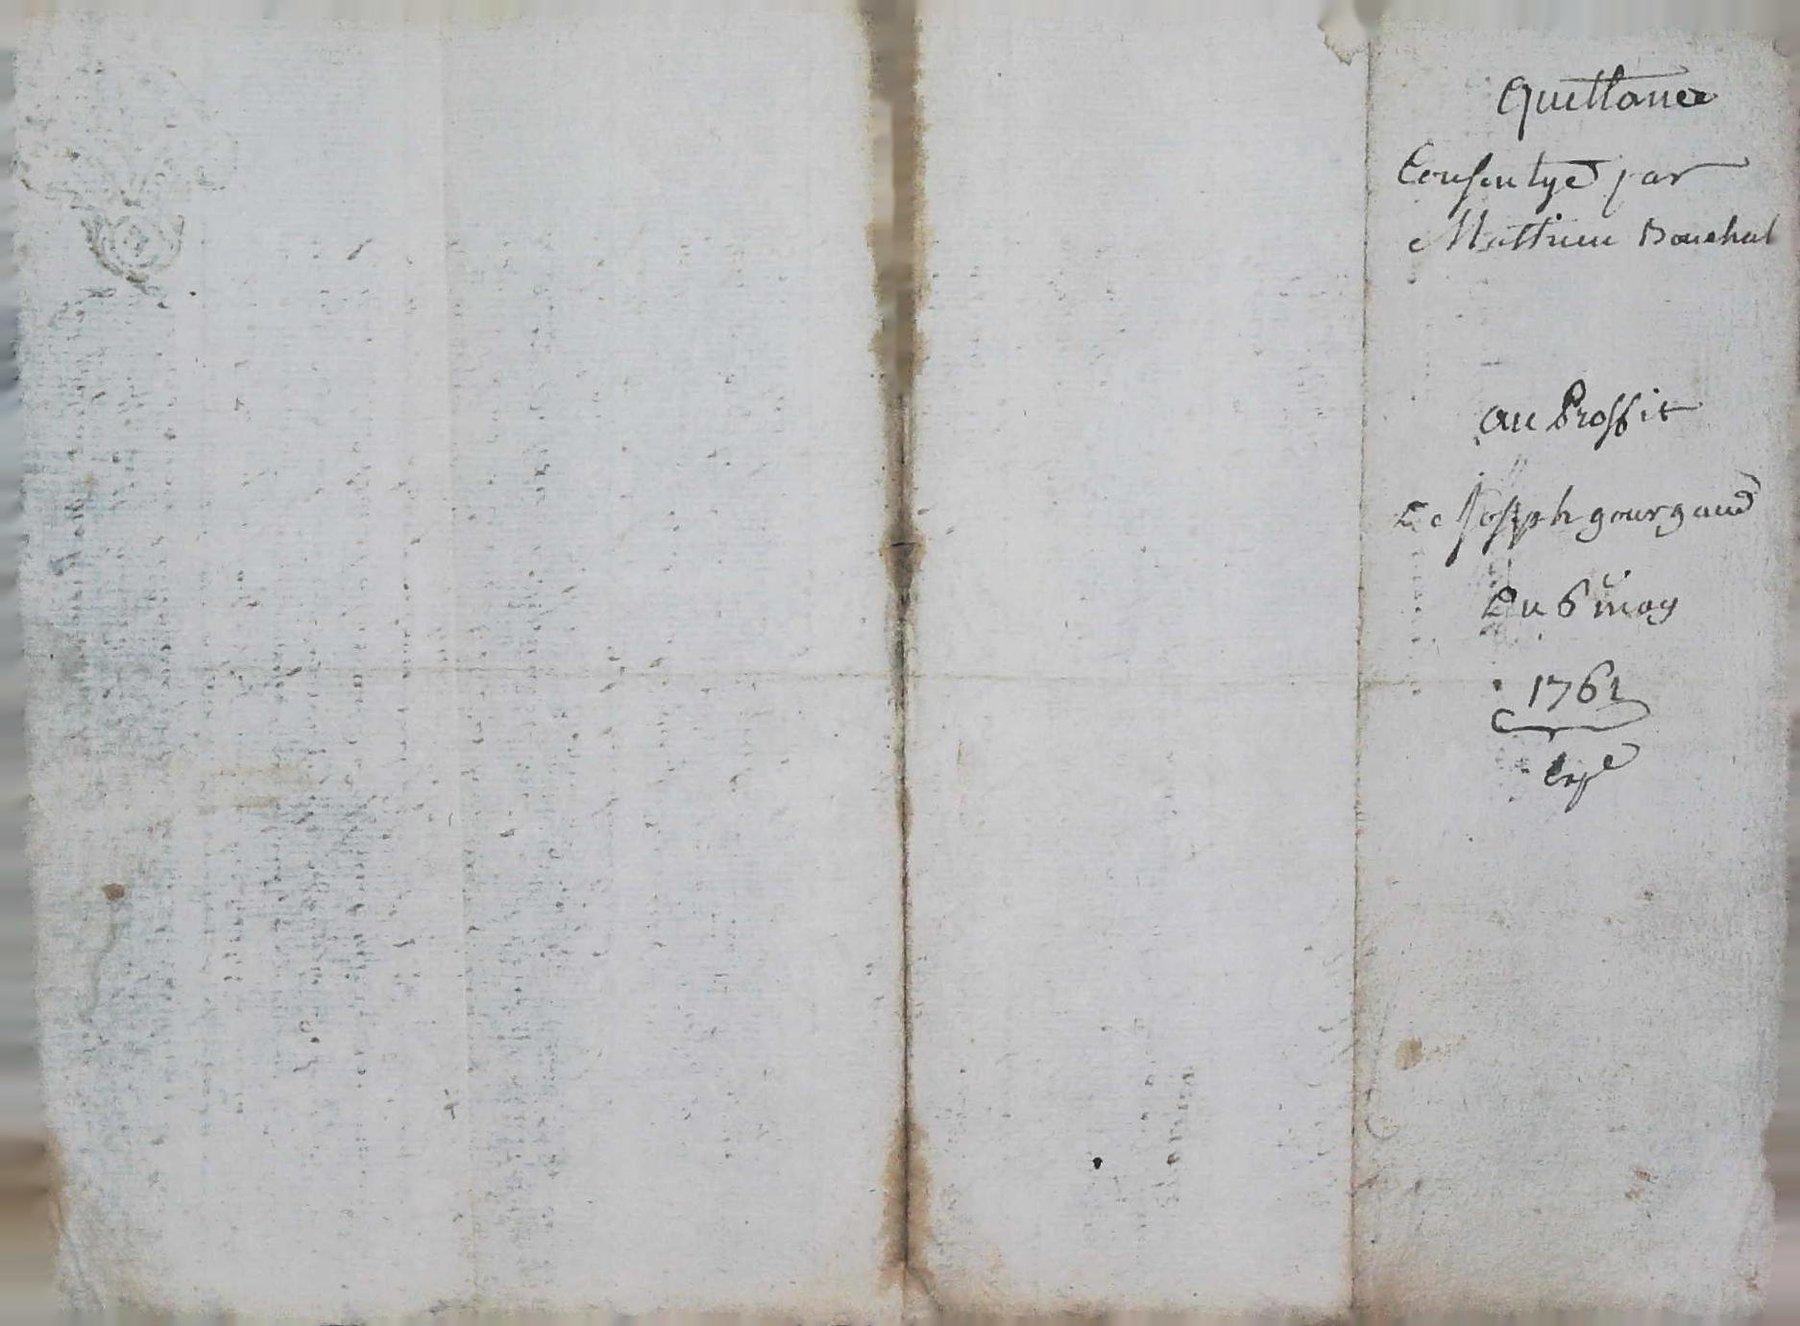 Quittance
Consentye par
Mathieu Bouchat
au Proffit
De Joseph gourgaud
Du 6e may
1761